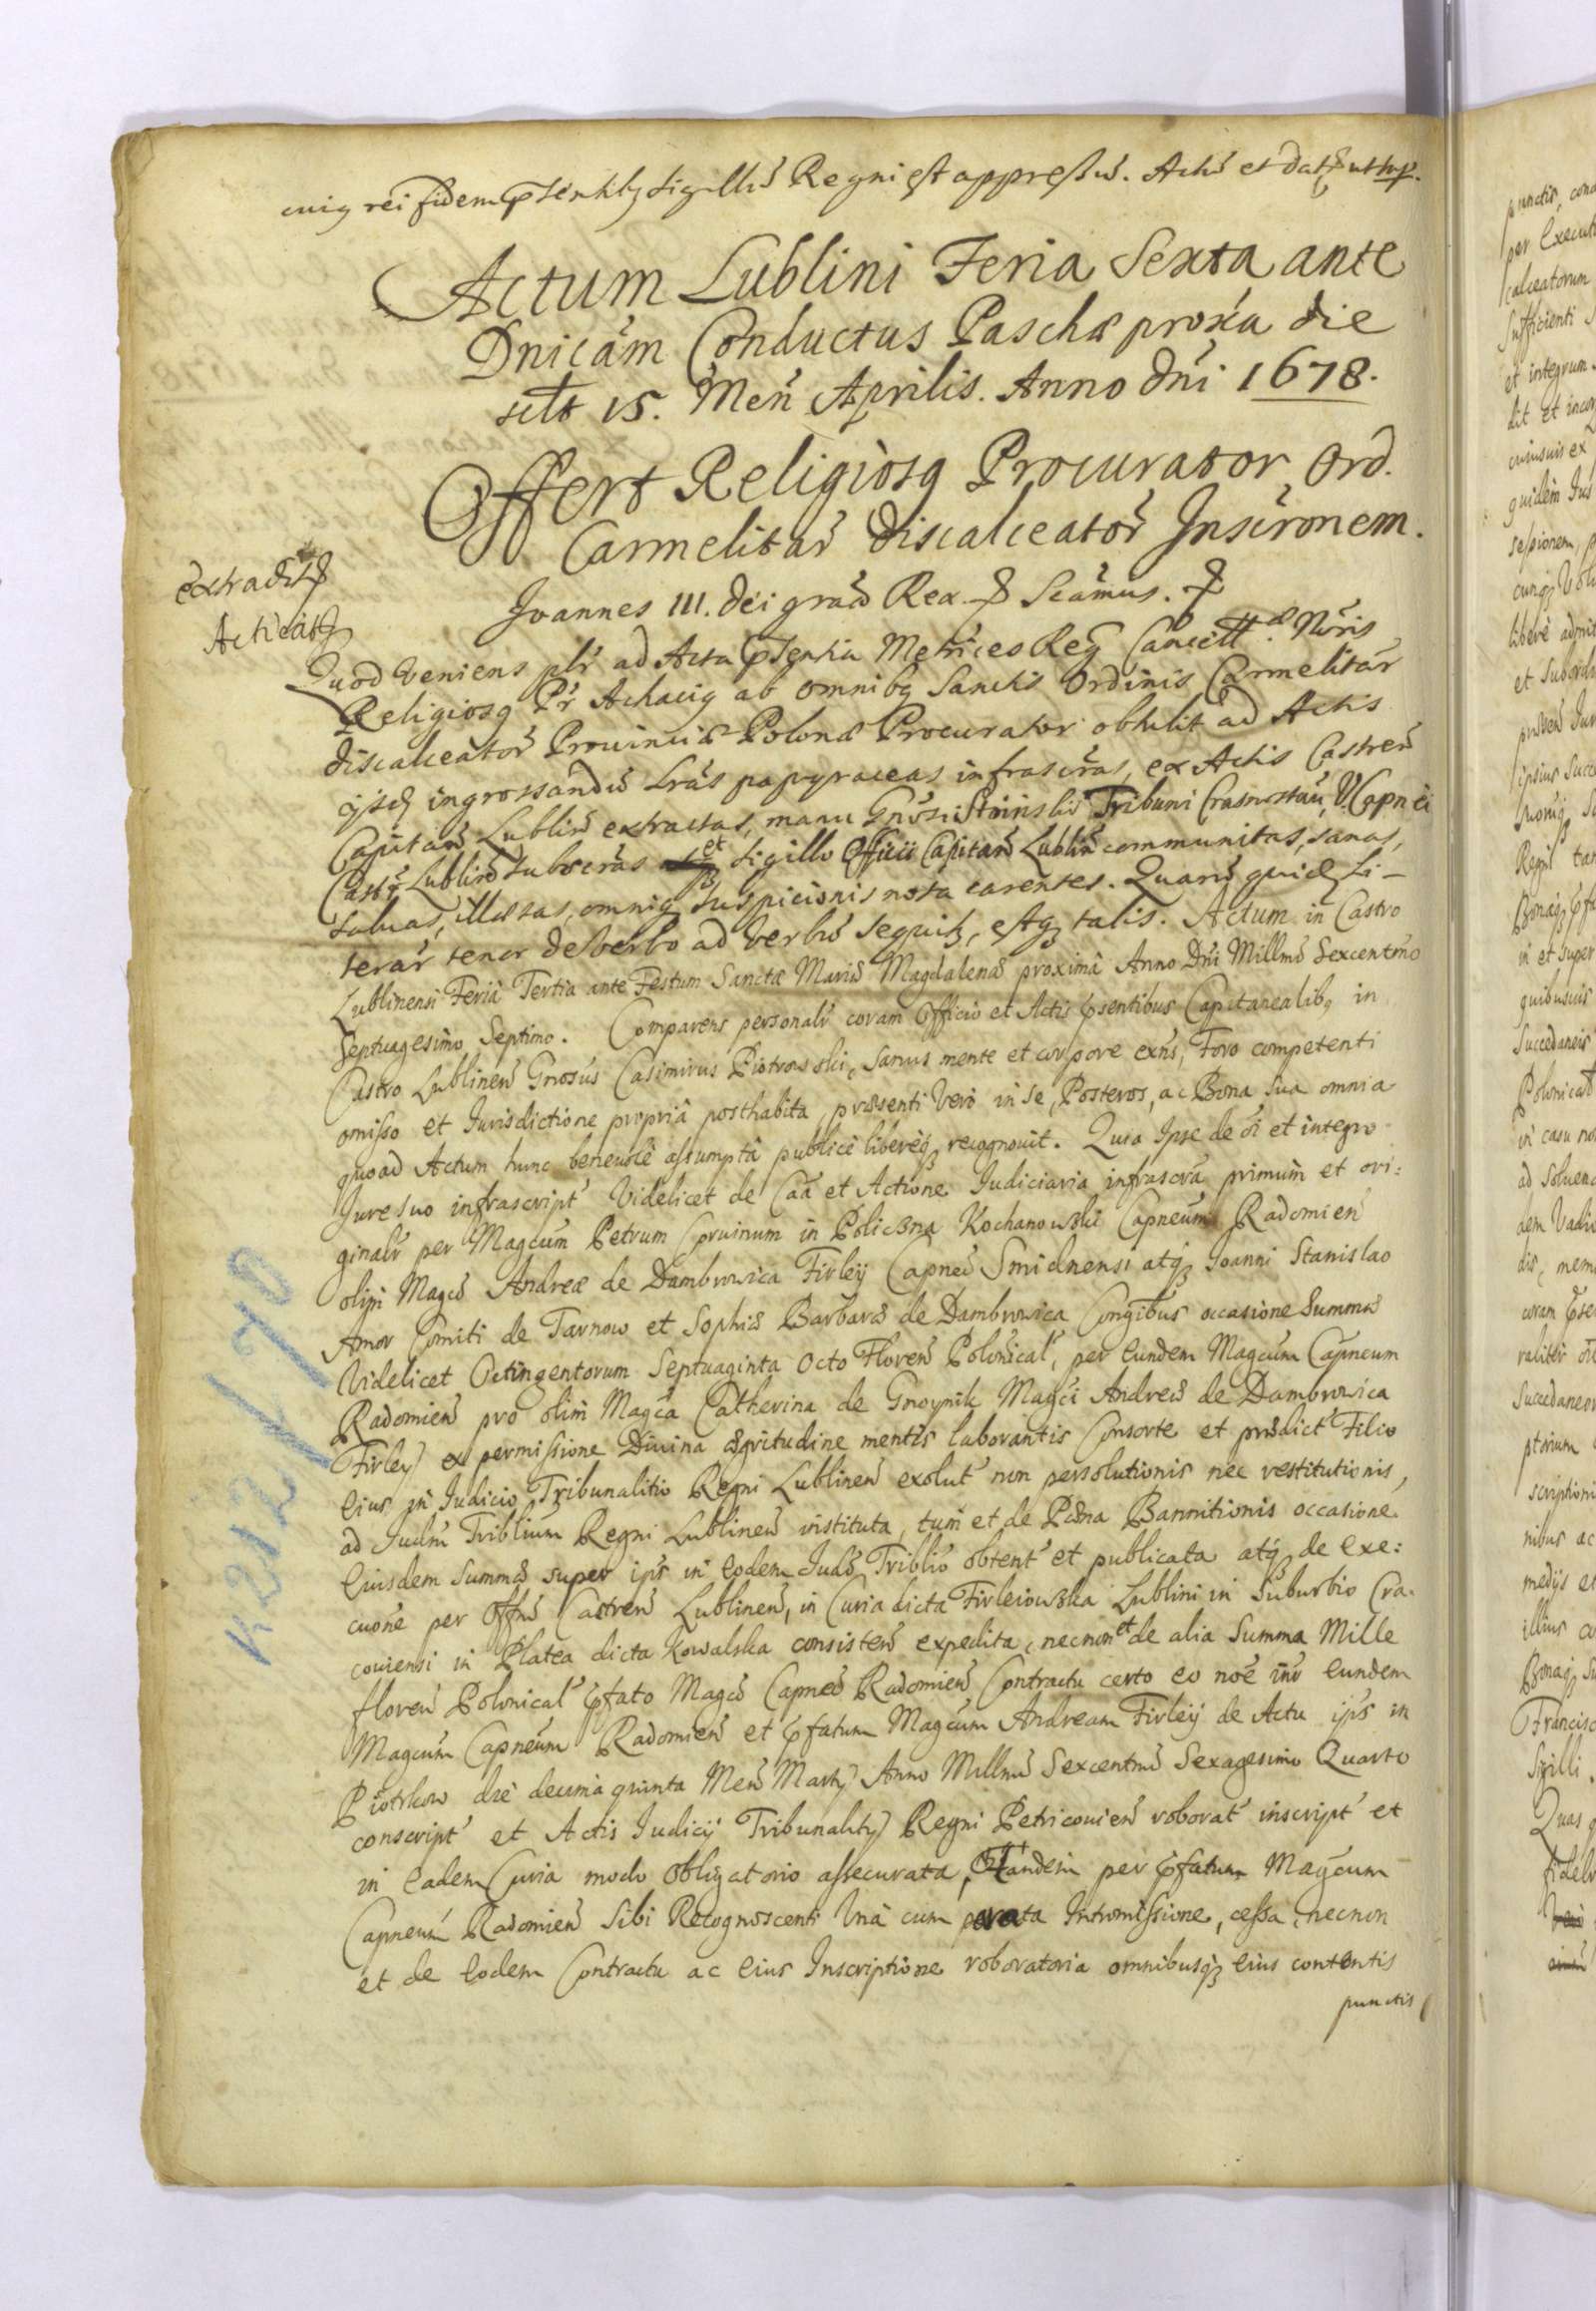 cuiq rei fidem pñtibz sigillũ Regni est appressũ. Actũ et datũ ut sup.
Actum Lublini Feria Sexta ante
Dnicãm Conductus Paschæ proxã die
sclt 15. Meñ Aprilis. Anno Dni 1678.
Offert Religiosq Procurator Ord.
Carmelitar̃ Discalceator̃ Inscr̃onem.
extradit
Acticat
Joannes III. Dei gra Rex Scãmus.
Quod veniens plr̃ ad Acta pñtia Metrices Reg Cancell. Nr̃is
Religiosq Pr̃ Achaciq ab omnibq Sanctis Ordinis Carmelitar̃
discalceator̃ Prouinciæ Polonæ Procurator obtulit ad Actis
ijsd ingrossandũ Lrãs papyraceas infrascr̃as, ex Actis Castreñ
Capitañ Lubliñ extractas, manu Gnõsi Stoinski Tribuni Crasnostau, V. Capnei
Castr̃ Lubliñ subscr̃as et sigillo Officii Capitañ Lubliñ communitas, sanas,
saluas, illæsas, omniq suspicionis nota carentes. Quar̃ quid Li-
terar̃ tenor de verbo ad verbũ sequitz, estqz talis. Actum in Castro
Lublinensi Feriâ Tertia ante Festum Sanctæ Mariæ Magdalenæ proximâ Anno Dñi Millmõ Sexcentmo
Septuagesimo Septimo. Comparens personalr̃ coram Officio et Actis pñsentibus Capitanealibq in
Castro Lublineñ Gnosus Casimirus Piotrowski, sanus mente et corpore exñs, Foro competenti
omisso et Jurisdictione propriâ posthabita, præsenti vero in se, Posteros, ac Bona sua omnia
quoad Actum hunc beneuole assumptâ publice libereqz recognouit. Quia Ipse de õi et integro
Jure suo infrascript Videlicet de Cãa et Actione Judiciaria infrascr̃a primum et ori:
ginalr̃ per Magcum Petrum Coruinum in Policzna Kochanowski Capneum Radomieñ
olim Magco Andreæ de Dambrowica Firleij Capneo Smidnensi atqz Joanni Stanislao
Amor Comiti de Tarnow et Sophiæ Barbaræ de Dambrowica Congibus occasione Summæ
Videlicet Octingentorum Septuaginta Octo Floreñ Polonical, per Eundem Magcum Capneum
Radomieñ pro olim Magca Catherina de Gnoynik Magci Andreæ de Dambrowica
Firleij ex permissione Diuina ægritudine mentis laborantis Consorte et prædict Filio
Eius in Judicio Tribunalitio Regni Lublineñ exolut non persolutionis nec restitutionis,
ad Judm Triblium Regni Lublineñ instituta, tum et de Pœna Bannitionis occasione
Eiusdem Summæ super ips in Eodem Judo Triblio obtent et publicata atqz de Exe:
cuone per Offm Castreñ Lublineñ, in Curia dicta Firleiowska Lublini in Suburbio Cra-
couiensi in Platea dicta Kowalska consisteñ expedita, necnon et de alia Summa Mille
floreñ Polonical pfato Magco Capneo Radomieñ Contractu certo eo noe inr Eundem
Magcum Capneum Radomieñ et pfatum Magcum Andream Firleij de Actu ips in
Piotrkow die decima quinta Meñ Martij Anno Millmo Sexcentmo Sexagesimo Quarto
conscript et Actis Judicij Tribunalitij Regni Petricouieñ roborat inscript et
in Eadem Curia modo Obligatorio assecurata, Tandem per pfatum Magcum
Capneum Radomieñ Sibi Recognoscenti Unâ cum parata Intromissione, cessa, necnon
et de Eodem Contractu ac Eius Inscriptione roboratoria omnibusqz Eius contentis
punctis